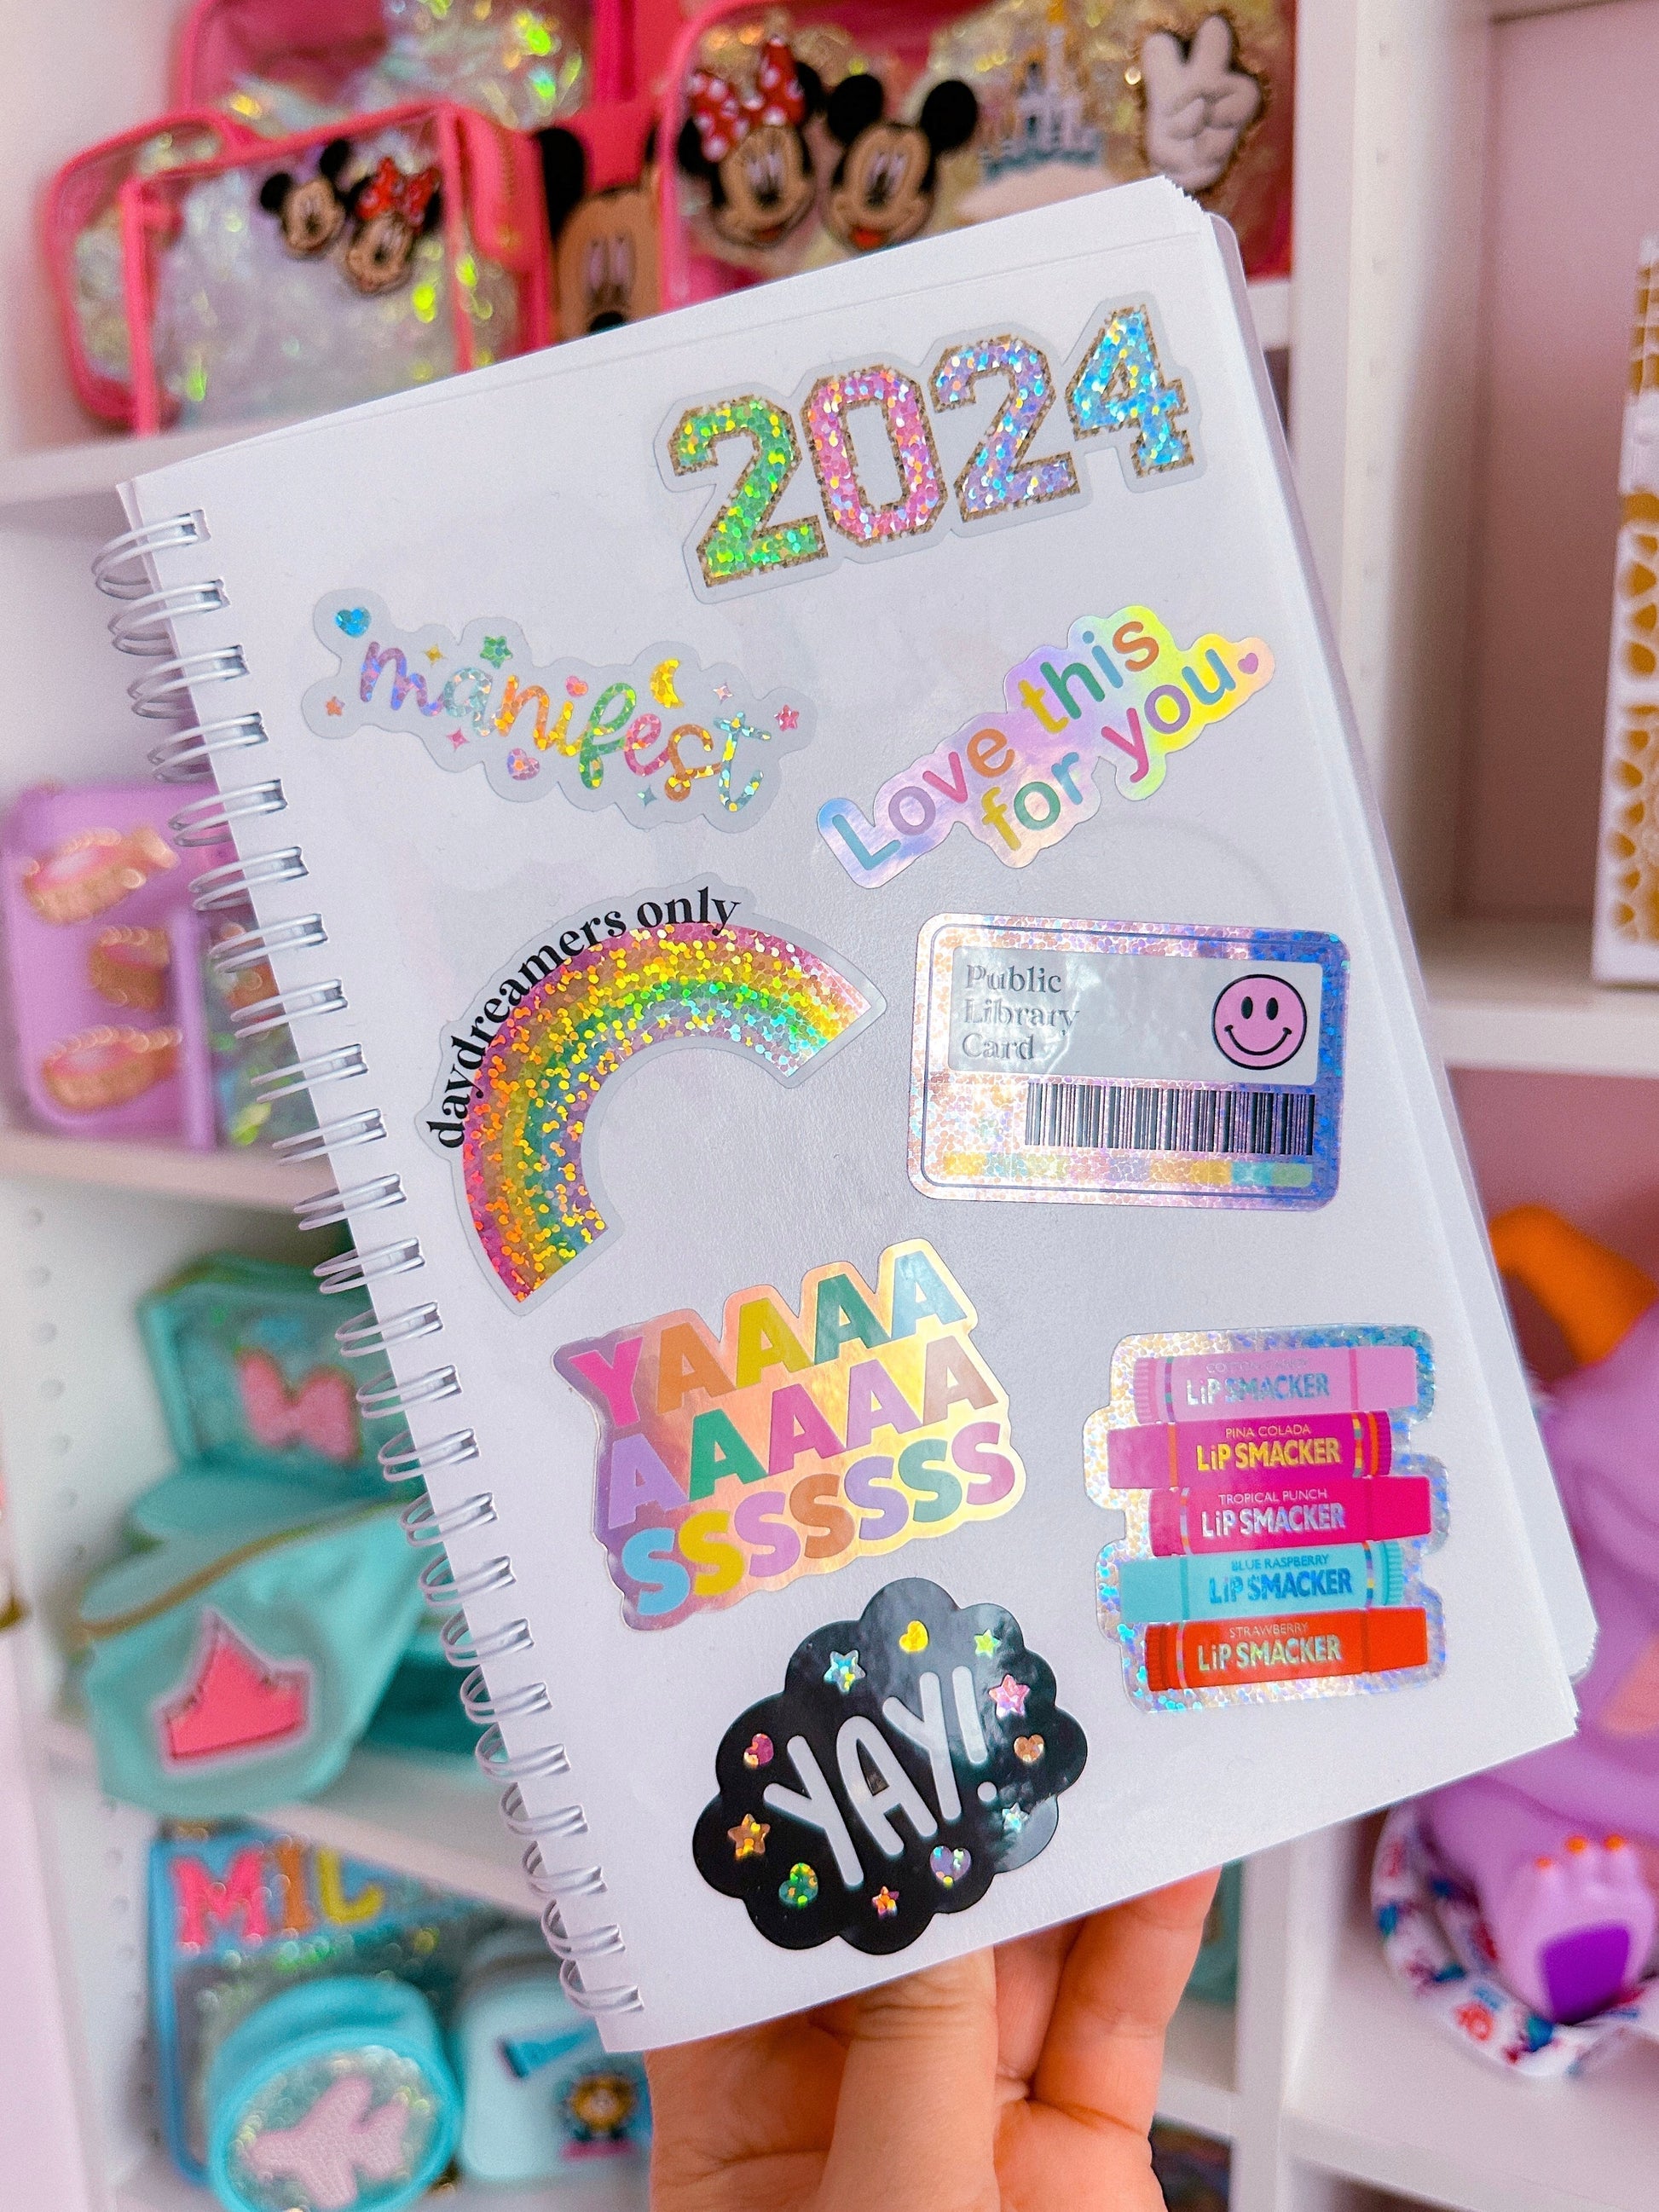 2024
manifest
Love this
for you
daydreamers only
Public
Library
Card
YAAAA
AAAAA
SSSSSSS
COTTON CANDY
LiP SMACKER
PINA COLADA
LiP SMACKER
TROPICAL PUNCH
LiP SMACKER
BLUE RASPBERRY
LiP SMACKER
STRAWBERRY
LiP SMACKER
YAY!
MIL